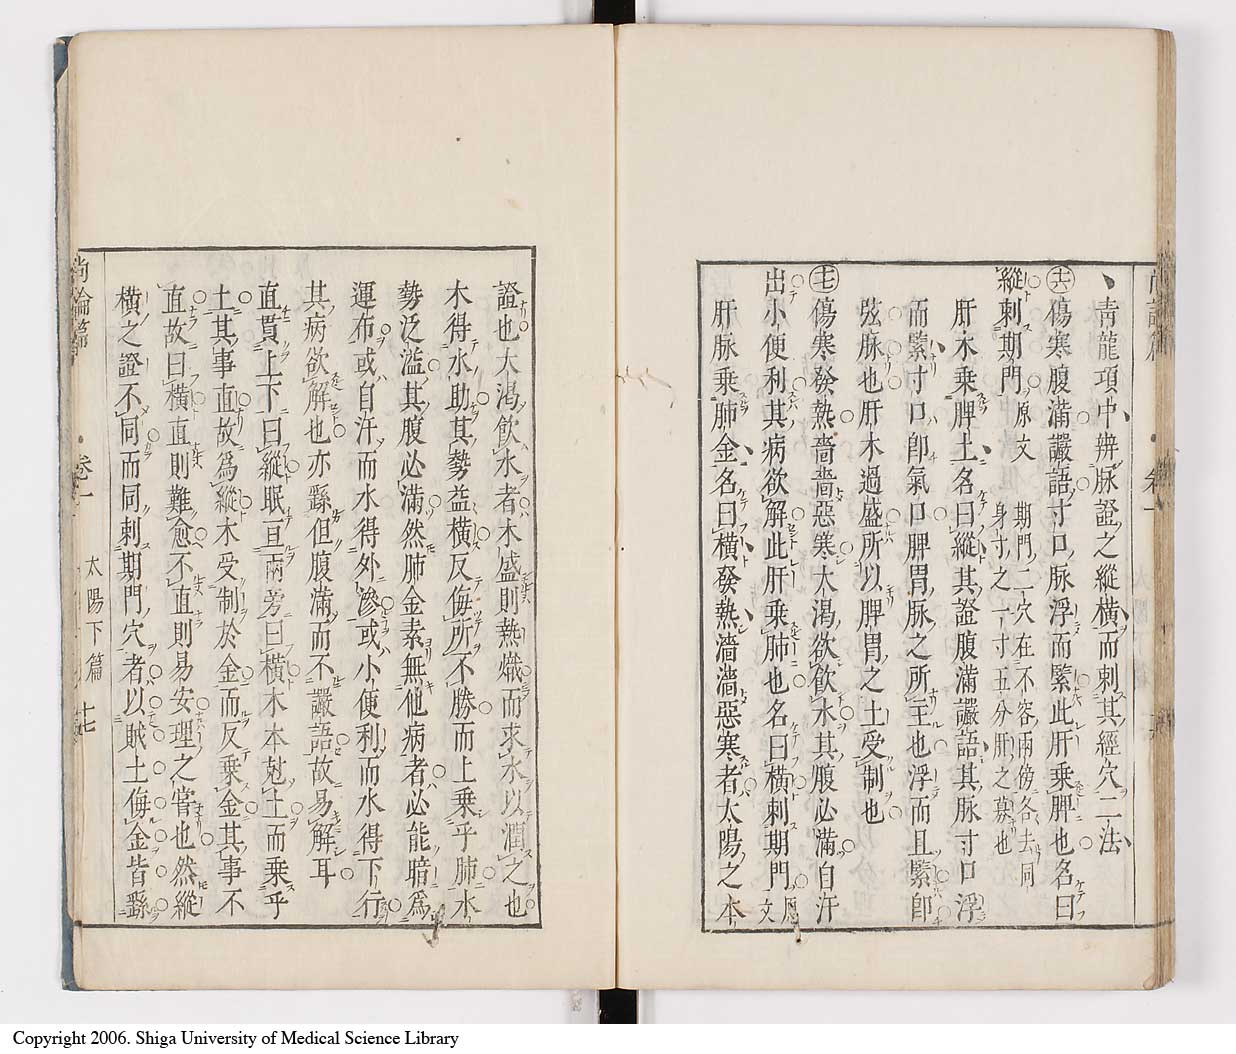 青龍項中辨脉證之縱橫而刺其經穴二法
㊅傷寒腹滿讝語寸口脉浮而緊此肝乘脾也名曰
縱刺期門原文 期門二穴在不容兩傍各去同
身寸之一寸五分肝之募也
肝木乘脾土名曰縱其證腹滿讝語其脉寸口浮
而緊寸口卽氣口脾胃脉之所主也浮而且緊卽
弦脉也肝木過盛所以脾胃之土受制也
㊆傷寒發熱嗇嗇惡寒大渴欲飮水其腹必滿自汗
出小便利其病欲解此肝乘肺也名曰橫刺期門原文
肝脉乘肺金名曰橫發熱濇濇惡寒者太陽之本
證也大渴飮水者木盛則熱熾而求水以潤之也
木得水助其勢益橫反侮所不勝而上乘乎肺水
勢泛濫其腹必滿然肺金素無他病者必能暗爲
運布或自汗而水得外滲或小便利而水得下行
其病欲解也亦繇但腹滿而不讝語故易解耳
直貫上下曰縱眠亘兩旁曰橫木本尅土而乘乎
土其事直故爲縱木受制於金而反乘金其事不
直故曰橫直則難愈不直則易安理之常也然縱
橫之證不同而同刺期門穴者以賊土侮金皆繇
尚論篇 卷一 太陽下篇 十七